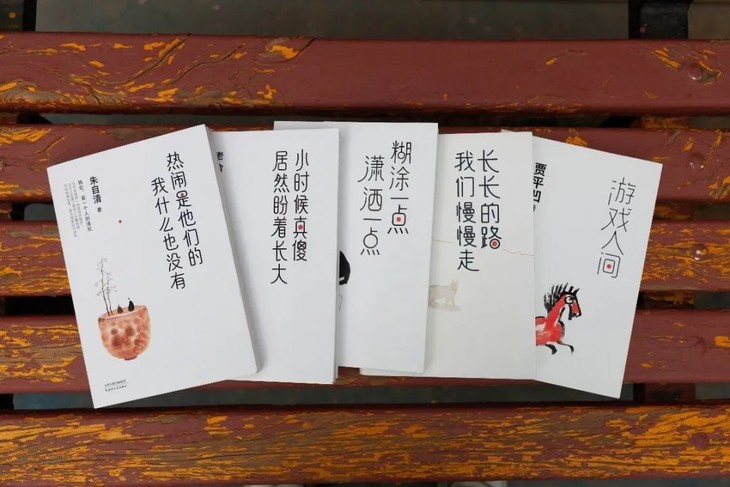 热闹是他们的
我什么也没有
朱自清 著
小时候真傻
居然盼着长大
老舍
糊涂一点
潇洒一点
长长的路
我们慢慢走
游戏人间
贾平凹